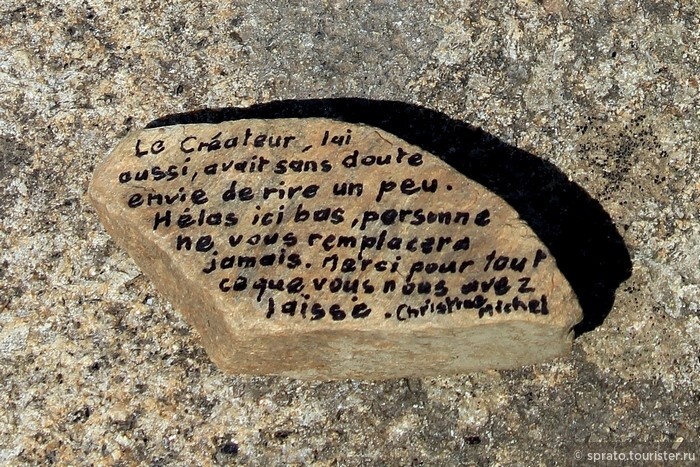 Le Créateur, lui
aussi, avait sans doute
envie de rire un peu.
Hélas ici bas, personne
ne vous remplacera
jamais. Merci pour tout
ce que vous nous avez
laissé. Christine Michel
© sprato.tourister.ru